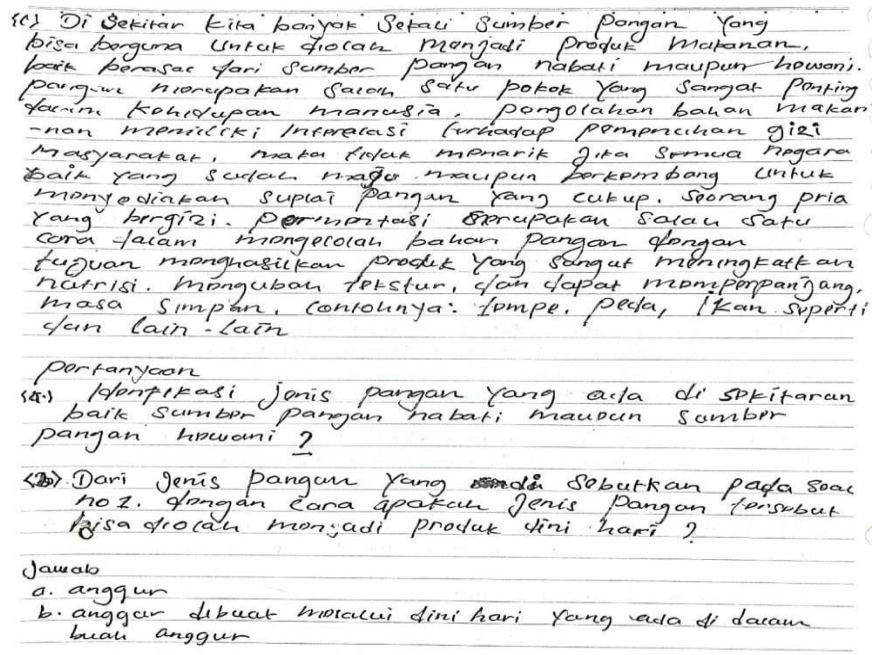 <c> Di sekitar kita banyak sekali sumber pangan yang
bisa berguna untuk diolah menjadi produk makanan,
baik berasal dari sumber pangan nabati maupun hewani.
pangan merupakan salah satu pokok yang sangat penting
dalam kehidupan manusia. pengolahan bahan makan
-nan memiliki interelasi terhadap pemenuhan gizi
masyarakat, maka tidak menarik jika semua negara
baik yang sudah maju maupun berkembang untuk
menyediakan suplai pangan yang cukup. seorang pria
yang bergizi. permentasi merupakan salah satu
cara dalam mengelolah bahan pangan dengan
tujuan menghasilkan produk yang sangat meningkatkan
nutrisi. mengubah tekstur, dan dapat memperpanjang,
masa simpan. contohnya: tempe, peda, ikan seperti
dan lain-lain
pertanyaan
Identifikasi jenis pangan yang ada di sekitaran
baik sumber pangan nabati maupun sumber
pangan hewani ?
<2b> Dari jenis pangan yang sebutkan pada soal
no 1. dengan cara apakah jenis pangan tersebut
bisa diolah menjadi produk dini hari ?
Jawab
a. anggur
b. anggur dibuat melalui dini hari yang ada di dalam
buah anggur